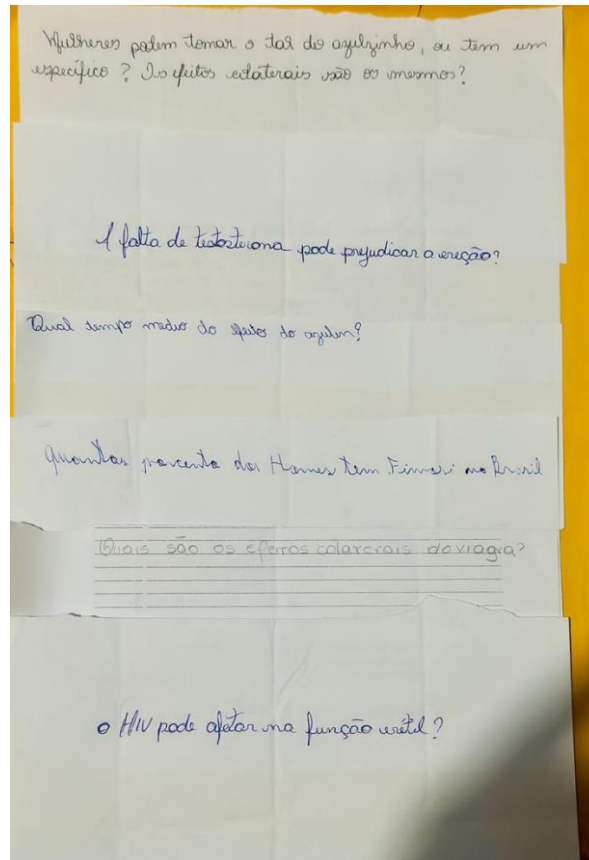 Mulheres podem tomar o tal do azulzinho, ou tem um
específico? Os efeitos colaterais são os mesmos?
A falta de testosterona pode prejudicar a ereção?
Qual tempo medio do efeito do
Quantos porcento dos Homes tem no Brasil
Quais são os efeitos colaterais do viagra?
O HIV pode afetar na função erétil?